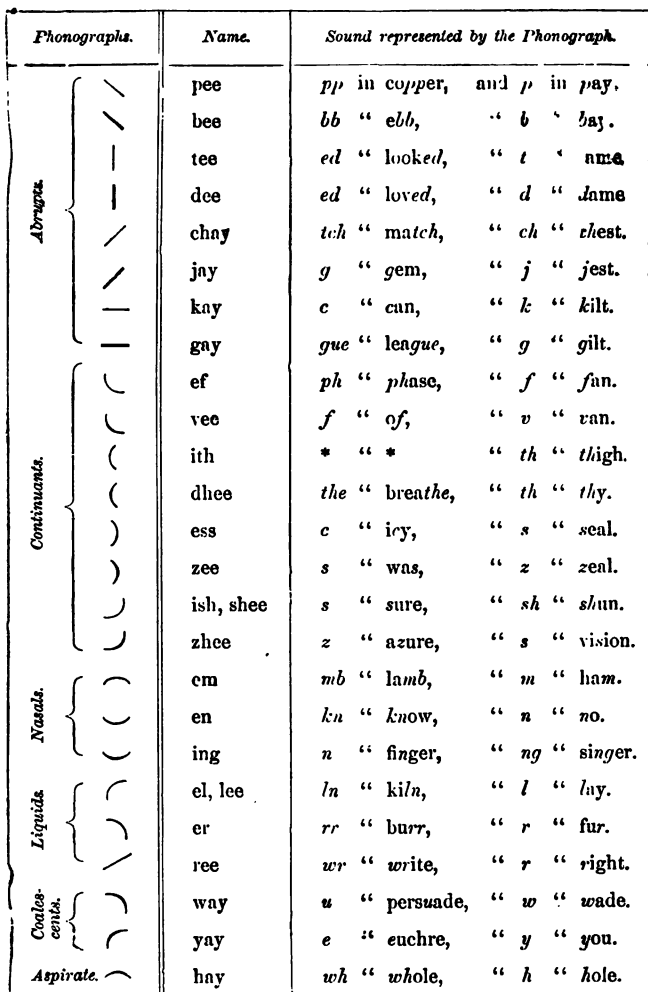 Phonographs. Name. Sound represented by the Phonograph.
Abrupts.
pee pp in copper, and p in pay.
bee bb “ ebb, “ b “ bay.
tee ed “ looked, “ t “ ame
dee ed “ loved, “ d “ dame
chay tch “ match, “ ch “ chest.
jay g “ gem, “ j “ jest.
kay c “ can, “ k “ kilt.
gay gue “ league, “ g “ gilt.
Continuants.
ef ph “ phase, “ f “ fan.
vee f “ of, “ v “ van.
ith * “ * “ th “ thigh.
dhee the “ breathe, “ th “ thy.
ess c “ icy, “ s “ seal.
zee s “ was, “ z “ zeal.
ish, shee s “ sure, “ sh “ shun.
zhee z “ azure, “ s “ vision.
Nasals.
em mb “ lamb, “ m “ ham.
en kn “ know, “ n “ no.
ing n “ finger, “ ng “ singer.
Liquids.
el, lee ln “ kiln, “ l “ lay.
er rr “ burr, “ r “ fur.
ree wr “ write, “ r “ right.
Coales-
cents.
way u “ persuade, “ w “ wade.
yay e “ euchre, “ y “ you.
Aspirate. hay wh “ whole, “ h “ hole.